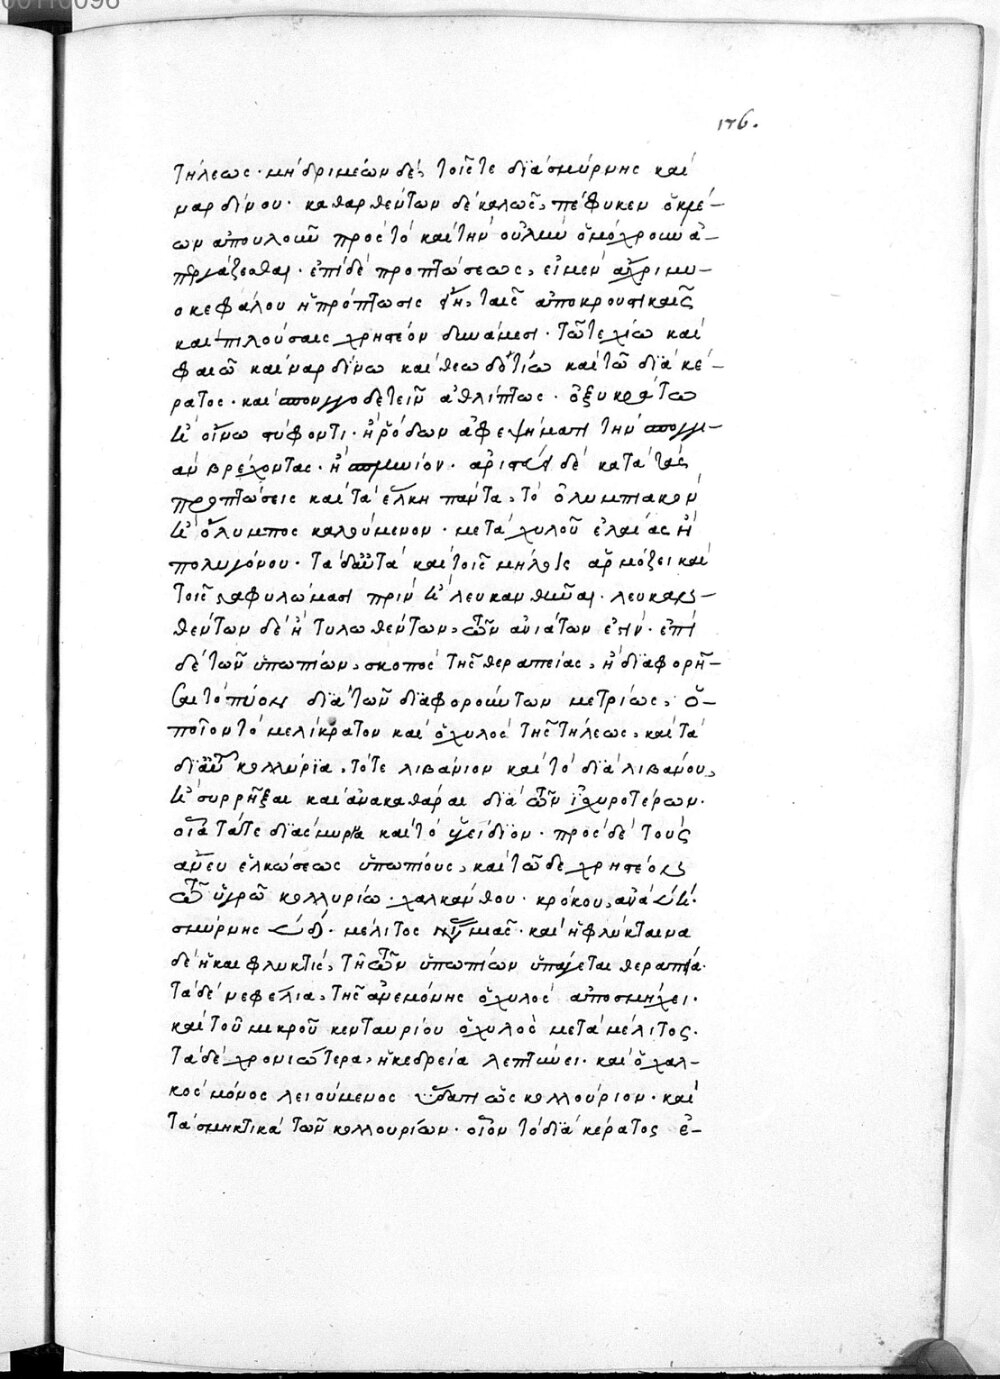 176.
τήλεως· μὴ δριμέων δὲ, τοῖς τε διὰ σμύρνης καὶ
ναρδίνου· καθαρθέντων δὲ καλῶς, πέφυκεν ὁ κρέ-
ων ἀπουλοῦν πρὸς τὸ καὶ τὴν οὐλὴν ὁμόχρουν ἀ-
περγάζεσθαι· ἐπὶ δὲ προπτώσεως, εἰ μὲν ἄχρι μυ-
οκεφάλου ἡ πρόπτωσις ᾖ, ταῖς ἀποκρουστικαῖς
καὶ πιλούσαις χρηστέον δυνάμεσι· τῶ τε χίω καὶ
φαιῶ καὶ ναρδίνω καὶ θεωδοτίω καὶ τῶ διὰ κέ-
ρατος· καὶ σπογγοδετεῖν ἀθλίπτως· ὀξυκράτω
ἢ οἴνω στύφοντι· ἢ ῥόδων ἀφεψήματι τὴν σπογγι-
ὰν βρέχοντας· ἢ σπόγγιον· ἄριστα δὲ κατὰ τὰς
προπτώσεις καὶ τὰ ἕλκη πάντα, τὸ ὀλυμπιακὸν
ἢ ὄλυμπος καλούμενον· μετὰ χυλοῦ ἐλαίας ἢ
πολυγόνου· τὰ δ' αὐτὰ καὶ τοῖς μήλοις ἁρμόζει καὶ
τοῖς σταφυλώμασι πρὶν ἢ λευκανθῆναι· λευκαν-
θέντων δὲ ἢ τυλωθέντων, τῶν ἀνιάτων ἐστίν· ἐπὶ
δὲ τῶν ὑπωπίων, σκοπὸς τῆς θεραπείας, ἢ διαφορῆ-
σαι τὸ πύον διὰ τῶν διαφορούντων μετρίως, ὁ-
ποῖον τὸ μελίκρατον καὶ ὁ χυλὸς τῆς τήλεως, καὶ τὰ
δι' αὐτῶν κολλύρια, τότε λιβάνιον καὶ τὸ διὰ λιβάνου,
ἢ συρρῆξαι καὶ ἀνακαθάραι διὰ τῶν ἰσχυροτέρων·
οἷα τά τε διὰ σμύρνα καὶ τὸ ψείδιον· πρὸς δὲ τοὺς
ἄνευ ἑλκώσεως ὑπωπίους, καὶ τῶδε χρηστέον
τῶ ὑγρῶ κολλυρίω· χαλκάνθου· κρόκου, ἀνὰ
σμύρνης δ· μέλιτος μιᾶς· καὶ ἡ φλύκταινα
δὲ ἡ καὶ φλυκτὶς, τῆ τῶν ὑπωπίων ὑπάγεται θεραπεία·
τὰ δὲ νεφέλια, τῆς ἀνεμώνης ὁ χυλὸς ἀποσμήχει·
καὶ τοῦ μικροῦ κενταυρίου ὁ χυλὸς μετὰ μέλιτος·
τὰ δὲ χρονιώτερα, ἡ κεδρεία λεπτύνει· καὶ ὁ χαλ-
κὸς μόνος λειούμενος ὕδατι ὡς κολλούριον· καὶ
τὰ σμηκτικὰ τῶν κολλουρίων· οἷον τὸ διὰ κέρατος ἐ-